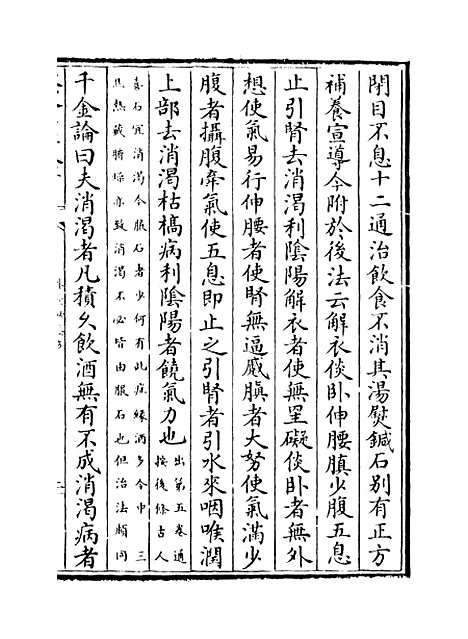 閉目不息十二通治飲食不消其湯熨鍼石别有正方
補養宣導今附於後法云解衣倓卧伸腰䐜少腹五息
止引腎去消渴利陰陽解衣者使無罣礙倓卧者無外
想使氣易行伸腰者使腎無逼蹙䐜者大努使氣滿少
腹者攝腹牽氣使五息即止之引腎者引水來咽喉潤
上部去消渴枯槁病利陰陽者饒氣力也
出第五卷通
按後條古人
喜石宜消渴今服石者少何有此症縁酒多令中三
焦熱藏腑燥亦致消渴不必皆由服石也但治法頗同
千金論曰夫消渴者凡積久飲酒無有不成消渴病者